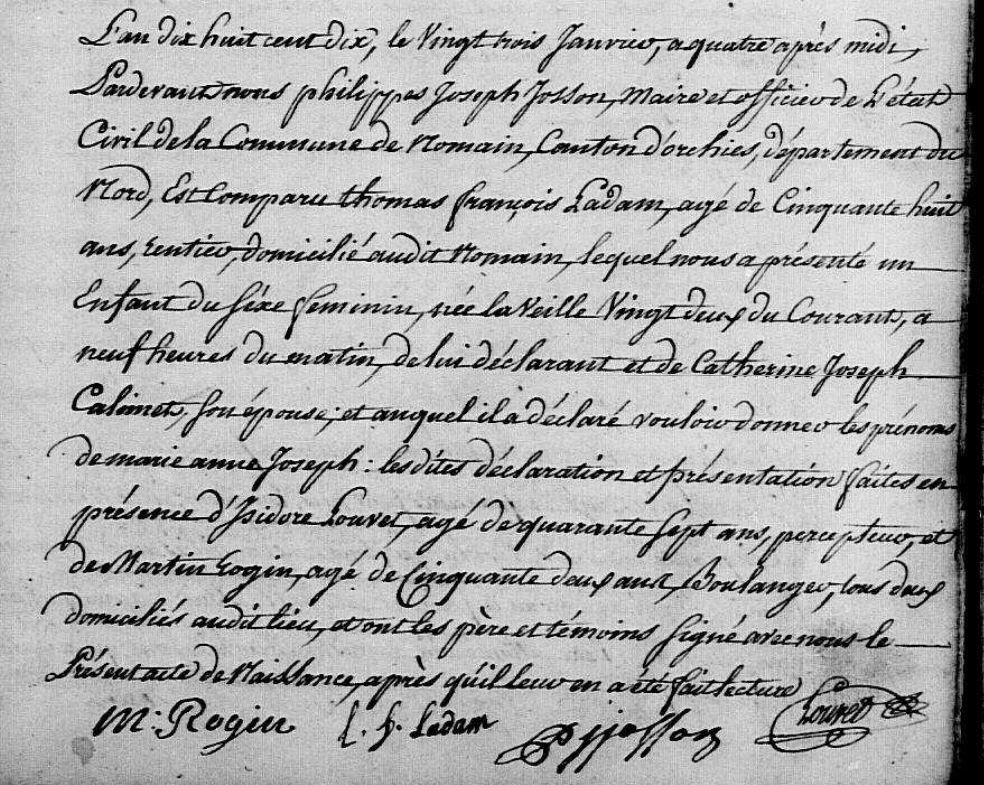 L'an dix huit cent dix, le vingt trois Janvier, a quatre après midi,
Pardevant nous philippes Joseph Josson, Maire et officier de L'état
Civil de la Commune de Nomain, Canton d'orchies, département du
Nord, Est Comparu thomas françois Ladam, agé de Cinquante huit
ans, rentier, domicilié audit Nomain, lequel nous a présenté un
Enfant du séxe feminin, née la veille Vingt deux du Courant, a
neuf heures du matin, de lui déclarant et de Catherine Joseph
Calimet, son épouse; et auquel il a déclaré vouloir donner les prénoms
de marie anne Joseph: les dites déclaration et présentation faites en
présence d'Isidore Louvet, agé de quarante sept ans, percepteur, et
de Martin Rogin, agé de Cinquante deux ans, Boulanger, tous deux
domiciliés audit lieu, et ont les père et témoins signé avec nous le
Présent acte de Naissance, après qu'il leur en a été fait lecture
M: Rogin t. f. Ladam PJJosson Louvet